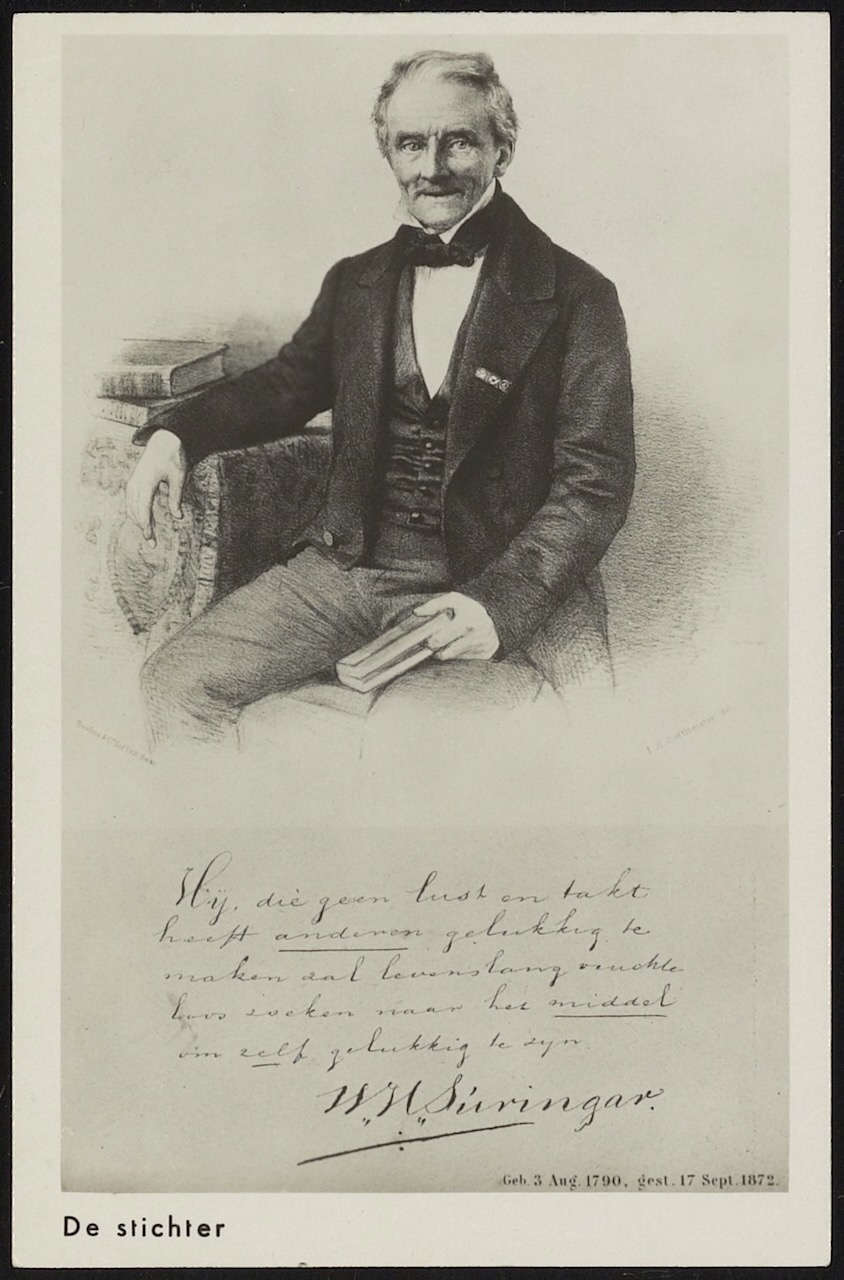 Hij, die geen lust en takt
heeft anderen gelukkig te
maken zal levenslang vruchte
loos zoeken naar het middel
om zelf gelukkig te zyn
W.H. Suringar.
Geb. 3 Aug. 1790, gest. 17 Sept. 1872.
De stichter